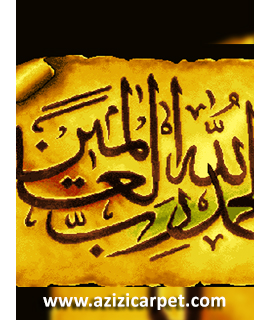 لله رب العالمين
www.azizicarpet.com